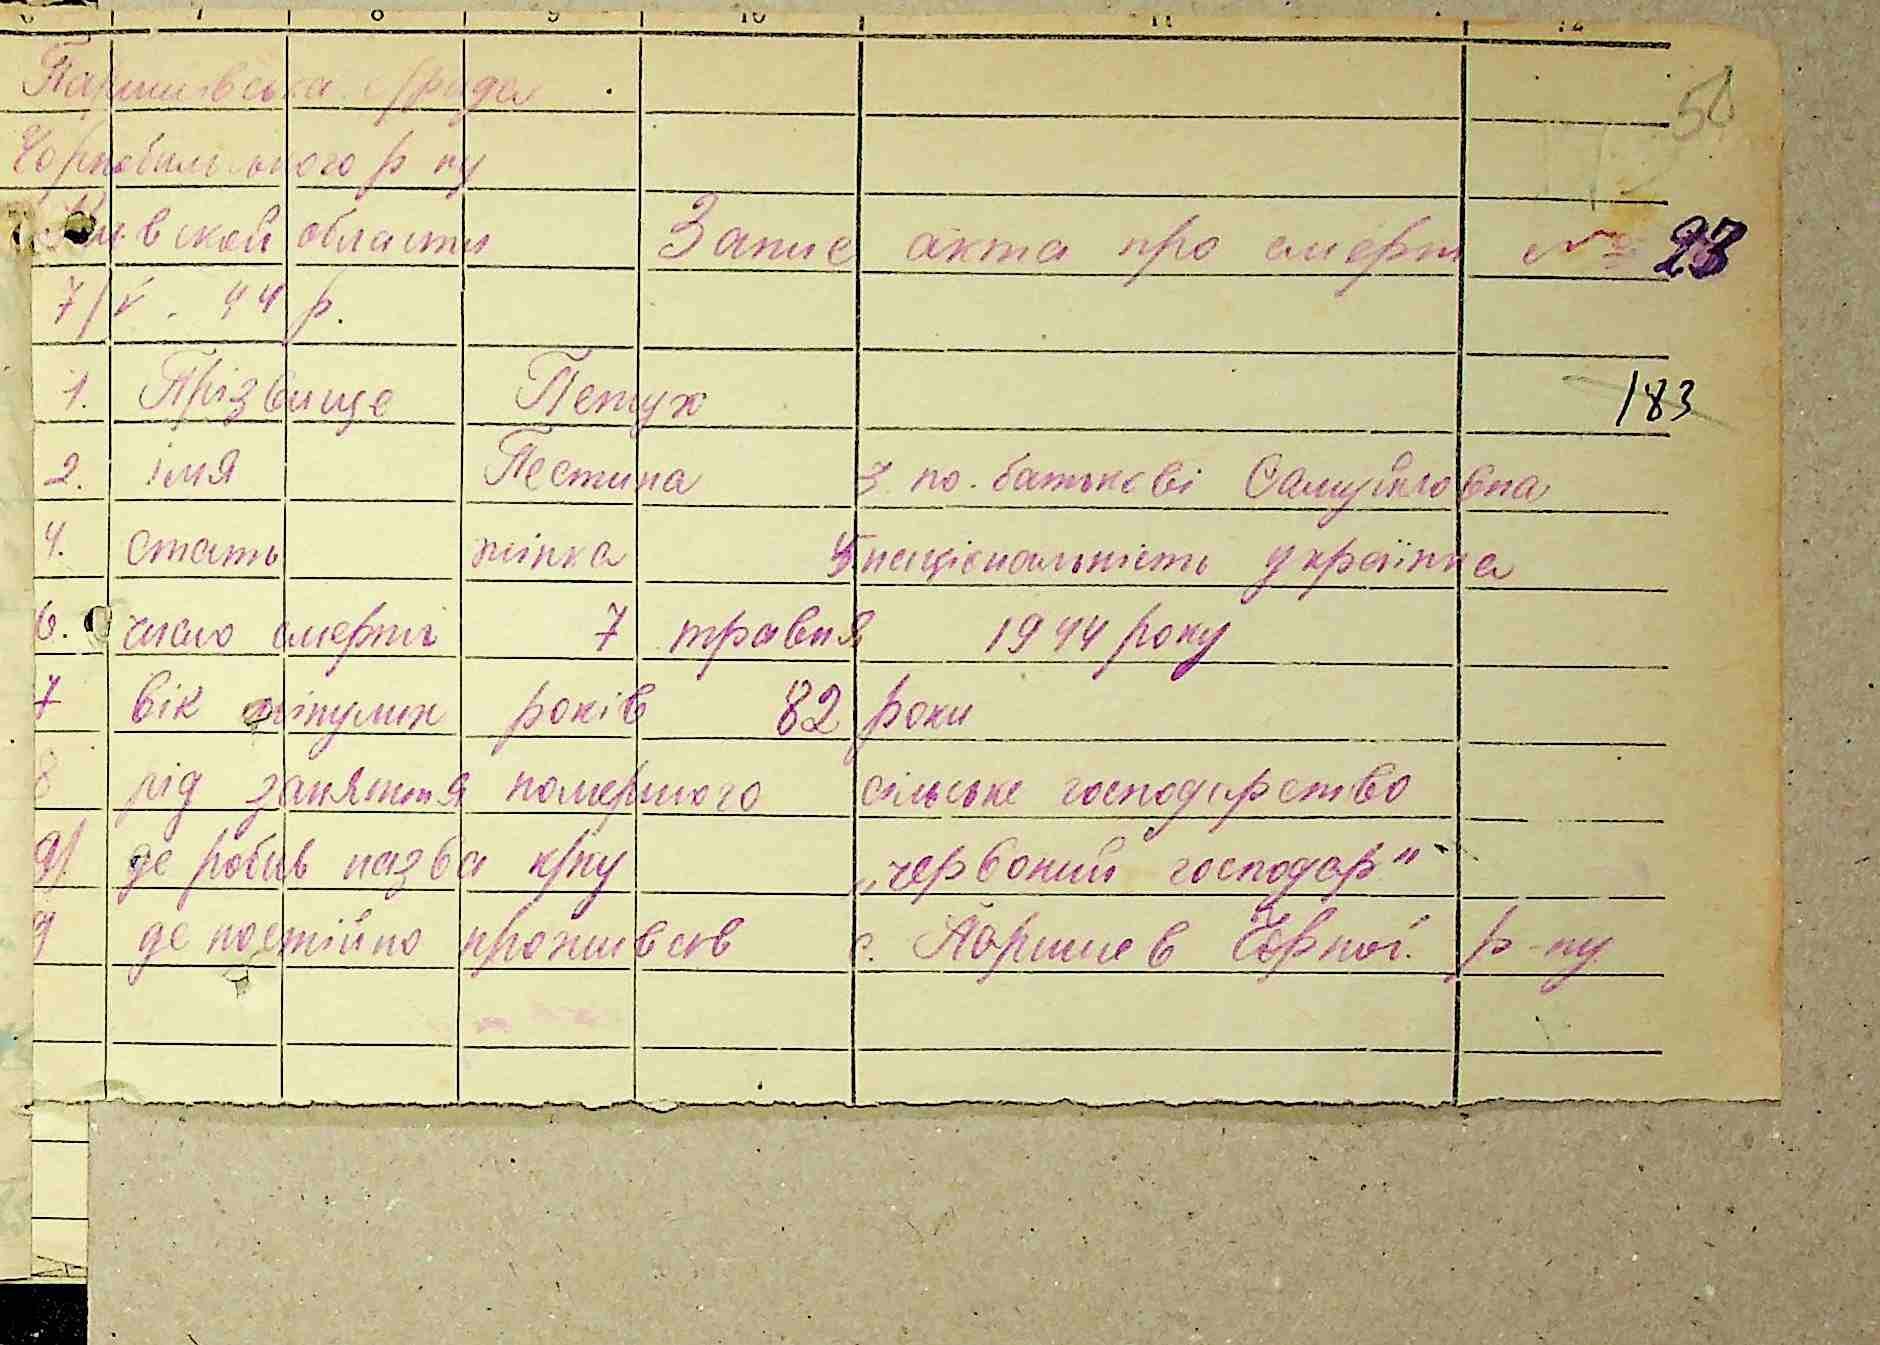 7 8 9 10 11 12
Паришівська с/рада
50
Чорнобильського р ну
Київской области Запис акта про смерть № 23
7/V. 44 р.
1. Прізвище Петух
183
2. імя Пестина 3 по. батькові Самуйловна
4. стать жінка 5 національність українка
6. число смерті 7 травня 1944 року
7 вік минулих років 82 роки
8 рід заняття помершого сільське господарство
а) де робив назва к/пу „червоний господар"
9 де постійно проживав с. Паришев Чорноі. р-ну